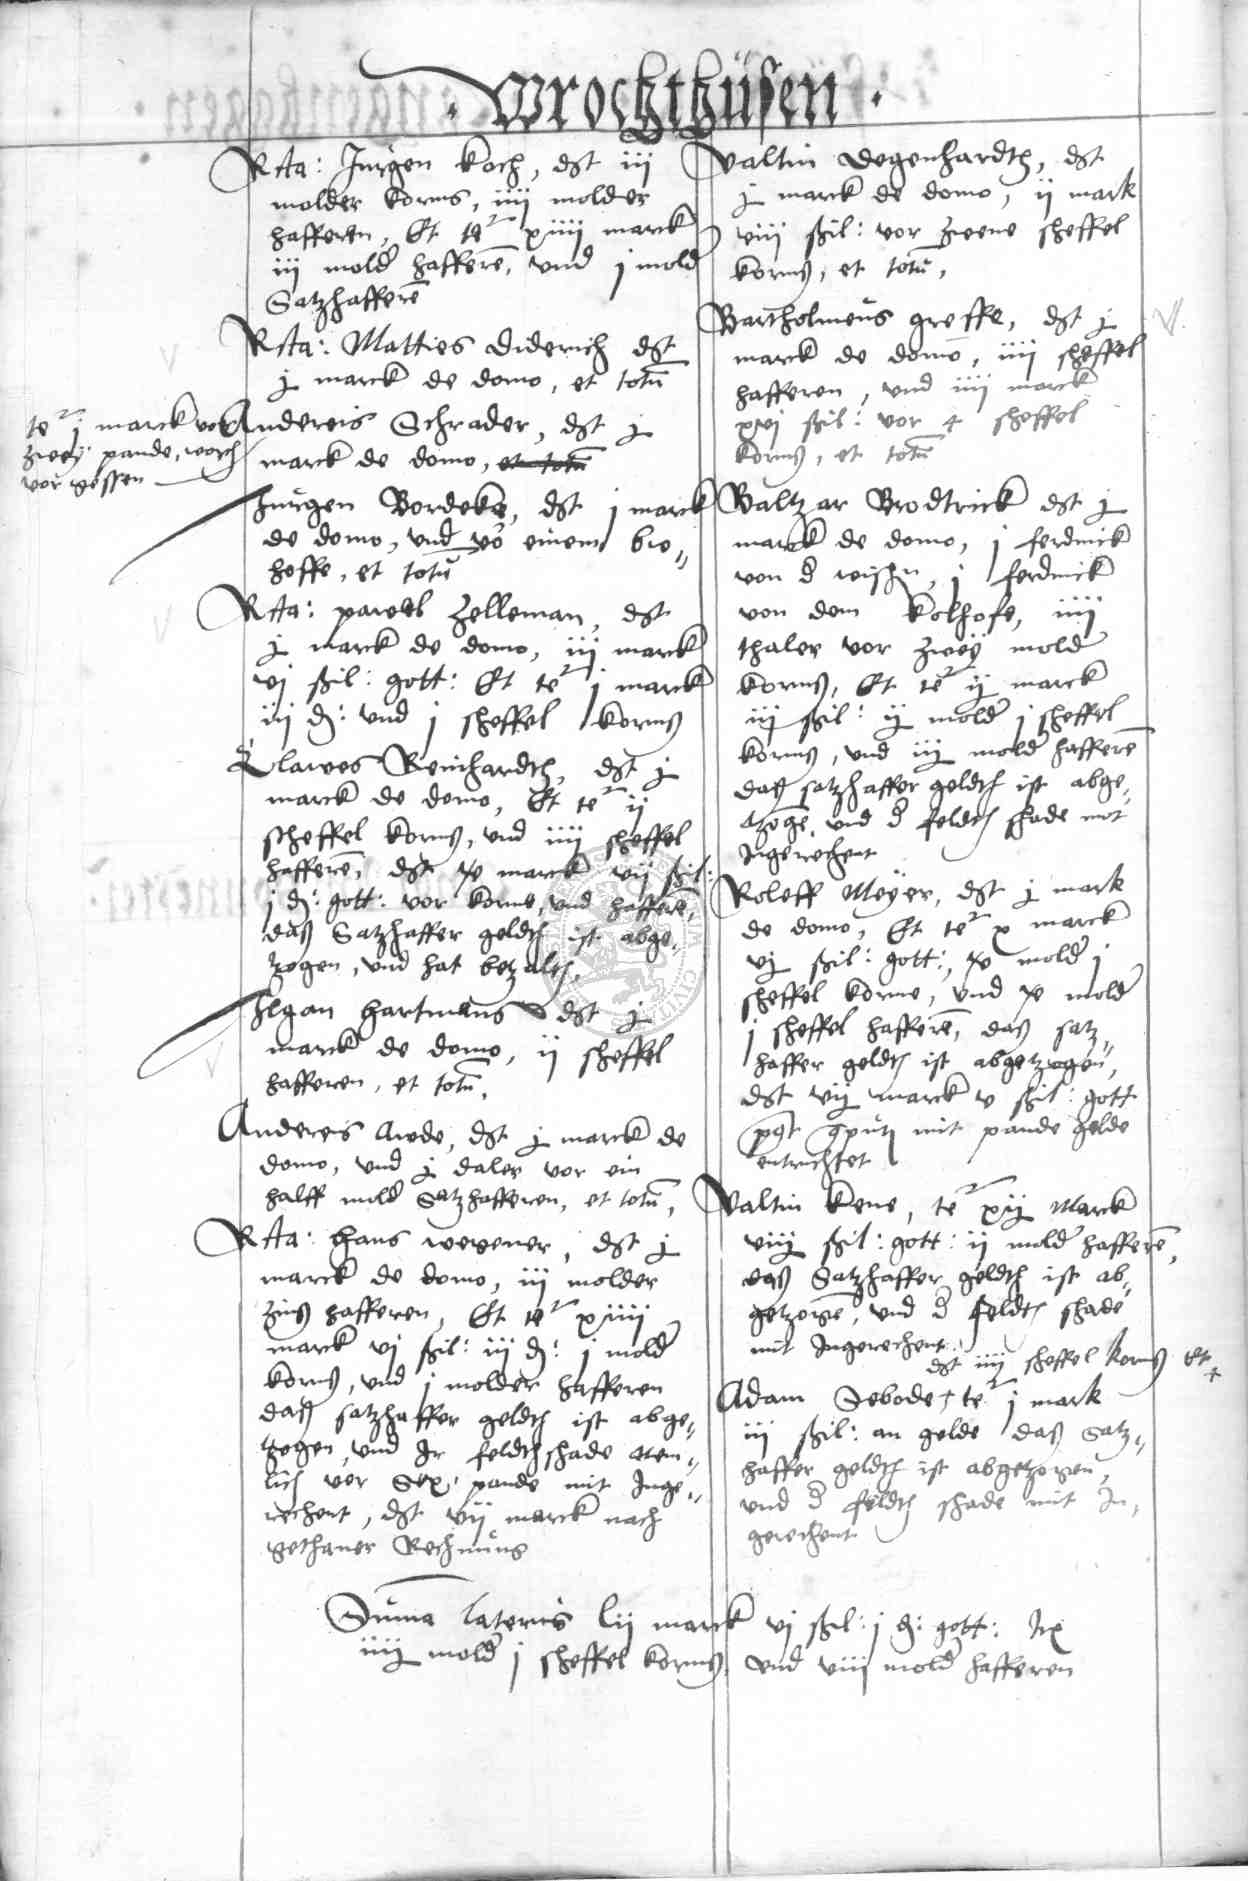 Wrochthüsen
Rsta: Jurgen Koch, dst iii
molder korns, iiii molder
hafferen, Et te^r xiiii marck
iii mold hafferē, vnd j mold
Satzhafferē
Rsta: Matties Diderich dst
j marck de domo, et totū
te^r j marck vor
zwey pande, worch
vor gessen
Andereis Schrader, dst j
marck de domo, et totū
Jurgen Bordeke, dst j marck
de domo, vnd vō einem bre,,
hoffe, et totū
Rsta: pawel Zelleman, dst
j marck de domo, iij marck
vj ßil: gott: Et te^r j marck
iij d: vnd j scheffel korns
Clawes Reinhardth, dst j
marck de domo, Et te^r ij
scheffel korns, vnd iiii scheffel
hafferē, dst xe marck vij ßil:
j d: gott: vor korne, vnd hafferē,
daß Satzhaffer geldth ist abge,,
zogen, vnd hat betzalth,
Ilgan Hartmans dst j
marck de domo, ij scheffel
hafferen, et totū,
Andereis Wede, dst j marck de
domo, vnd j daler vor ein
halff mold Satzhafferen, et totū,
Rsta: Hans wegener, dst j
marck de domo, iii molder
zins hafferen, Et te^r xiiii
marck vj ßil: iij d: j mold
korns, vnd j molder hafferen
daß satzhaffer geldth ist abge,,
zogen, vnd Jr feldth shade nem,,
lich vor Sex pande mit Inge,,
rechent, dst vij marck nach
gethaner Rechnung
Valtin Degenhardth, dst
j marck de domo, ij mark
viii ßil: vor zweene scheffel
korns, et totū,
Bartholmeus greffe, dst j
marck de domo, iiii scheffel
hafferen, vnd iiii marck
xvj ßil: vor 4 scheffel
korns, et totū
Baltzar Brodtrick dst j
marck de domo, j ferdinck
von d wischn, j ferdinck
von dem Kolhofe, iiii
thaler vor zwey mold
korns, Et te^r ij marck
iij ßil: ij mold j scheffel
korns, vnd iij mold hafferē
daß satzhaffer geldth ist abge,,
tzogē, vnd d feldth shade mit
Ingerechent
Roleff Meyer, dst j mark
de domo, Et te^r x marck
vj ßil: gott:, xe mold j
scheffel korne, vnd xe mold
j scheffel hafferē, daß satz,,
haffer geldth ist abgetzogen,
dst vij marck v ßil: gott
mit pande gelde
entrichtet
Valtin Kene, te^r xij Marck
viij ßil: gott: ij mold hafferē,
daß Satzhaffer geldth ist ab,,
getzogē, vnd d feldth shade
mit Ingerechent
dst iiij scheffel korns Et
Adam Sebode, te^r j mark
iii ßil: an gelde daß Satz,,
haffer geldth ist abgetzogen,
vnd d feldth shade mit In,,
gerechent
Suma lateris lij marck vj ßil: j d: gott:
iiij mold j scheffel korns, vnd viii mold hafferen